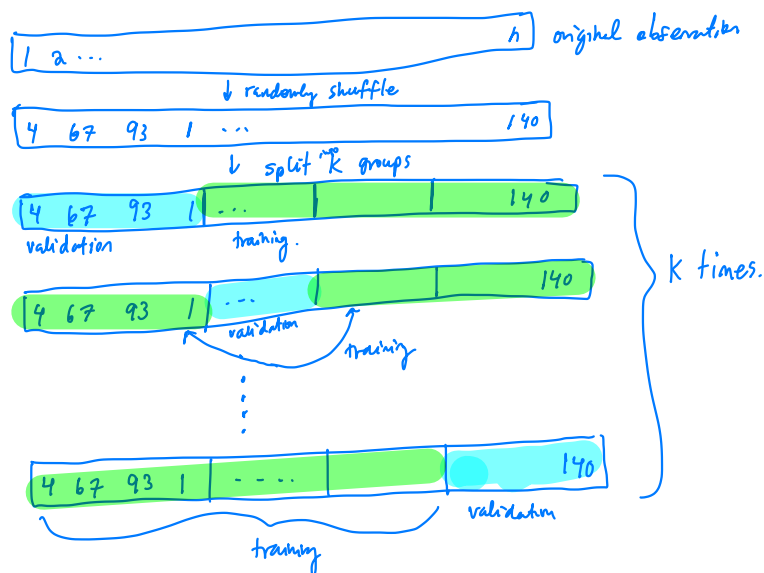 1 2 ... n original observation
↓ randomly shuffle
4 67 93 1 ... 140
↓ split into K groups
4 67 93 1 ... 140
validation training.
K times.
4 67 93 1 ... 140
validation
training
4 67 93 1 .... 140
validation
training